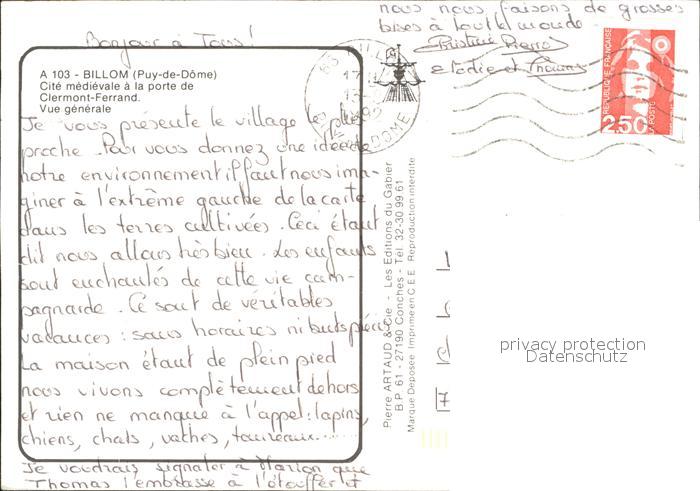 Bonjour à Tous !
A 103 - BILLOM (Puy-de-Dôme)
Cité médiévale à la porte de
Clermont-Ferrand.
Vue générale
Je vous présente le village le plus
proche. Pour vous donnez une idée de
notre environnement il faut nous ima-
giner à l'extrême gauche de la carte
dans les terres cultivées. Ceci étant
dit nous allons très bien. Les enfants
sont enchantés de cette vie cam-
pagnarde. Ce sont de véritables
vacances : sans horaires ni buts précis
La maison étant de plein pied
nous vivons complètement dehors
et rien ne manque à l'appel : lapins,
chiens, chats, vaches, taureaux......
Je voudrais signaler à Marion que
Thomas l'embrasse à l'étouffer et
nous nous faisons de grosses
bises à tout le monde
Christine Pierre
Elodie et Thomas
63
DOME
REPUBLIQUE FRANÇAISE
LA POSTE
2,50
Pierre ARTAUD & Cie - Les Editions du Gabier
B.P. 61 - 27190 Conches - Tél. 32-30 99 61
Marque Déposée Imprimé en C.E.E. Reproduction interdite
privacy protection
Datenschutz